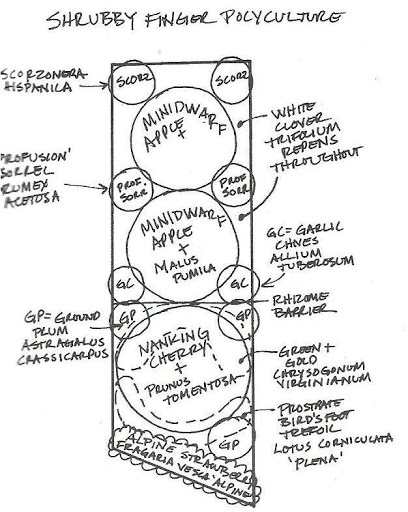 SHRUBBY FINGER POLYCULTURE
SCORZONERA
HISPANICA
SCORZ
SCORZ
MINIDWARF
APPLE
+
WHITE
CLOVER
TRIFOLIUM
REPENS
THROUGHOUT
PROFUSION'
SORREL
RUMEX
ACETOSA
PROF.
SORR
PROF.
SORR
MINIDWARF
APPLE
+
MALUS
PUMILA
GC = GARLIC
CHIVES
ALLIUM
TUBEROSUM
GC
GC
RHIZOME
BARRIER
GP = GROUND
PLUM
ASTRAGALUS
CRASSICARPUS
GP
GP
NANKING
CHERRY
+
PRUNUS
TOMENTOSA
GREEN +
GOLD
CHRYSOGONUM
VIRGINIANUM
PROSTRATE
BIRD'S FOOT
TREFOIL
LOTUS CORNICULATA
'PLENA'
GP
ALPINE STRAWBERRY
FRAGARIA VESCA 'ALPINE'